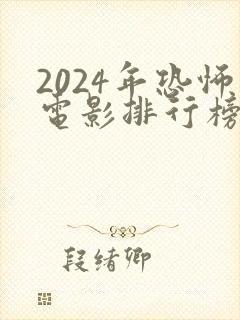 2024年恐怖
电影排行榜
段绪卿